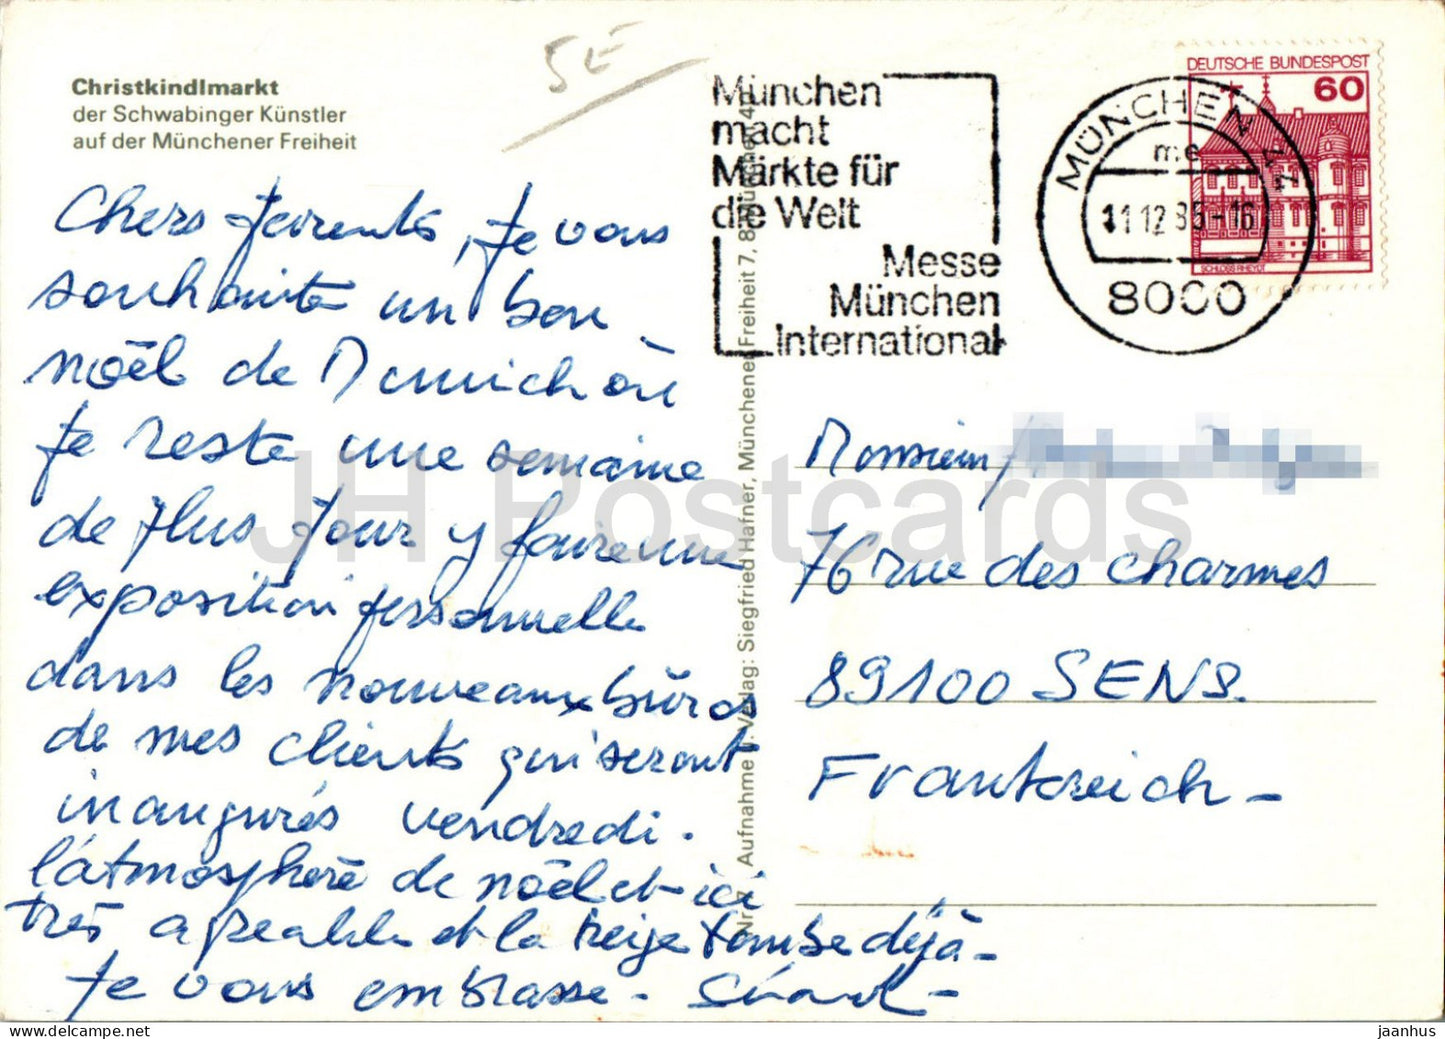 Christkindlmarkt
der Schwabinger Künstler
auf der Münchener Freiheit
5E
München
macht
Märkte für
die Welt
Messe
München
International
MÜNCHEN
me
11.12.85-16
8000
DEUTSCHE BUNDESPOST
60
SCHLOSS RHEYDT
Chers Parents, Je vous
souhaite un bon
noël de Munich où
Je reste une semaine
de plus pour y faire une
exposition personnelle
dans les nouveaux bûros
de mes clients qui seront
inaugurés vendredi.
l'atmosphère de noël est ici
très agréable et la neige tombe déjà -
Je vous embrasse - Gérard -
Aufnahme u. Verlag: Siegfried Hafner, Münchener Freiheit 7, 8 München 40
Monsieur
76 rue des charmes
89100 SENS.
Frankreich -
JH Postcards
jaanhus